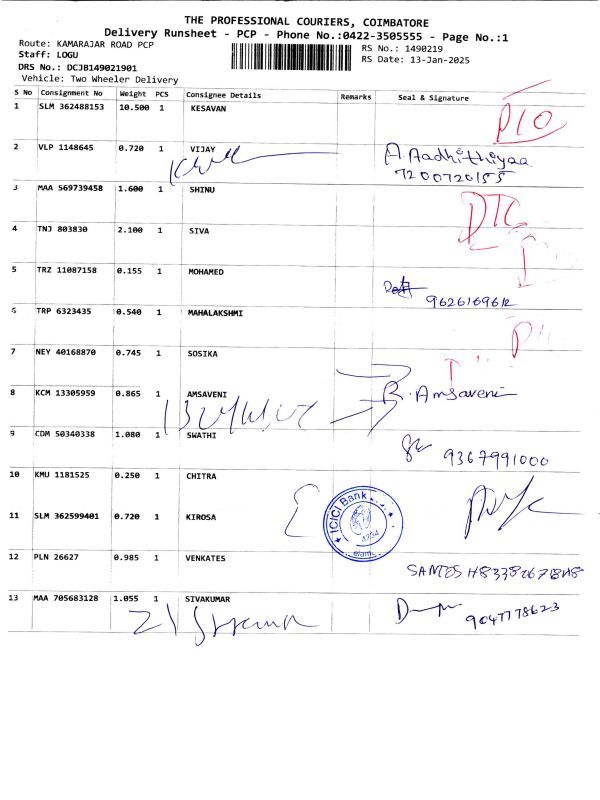 THE PROFESSIONAL COURIERS, COIMBATORE
Delivery Runsheet - PCP - Phone No.:0422-3505555 - Page No.:1
Route: KAMARAJAR ROAD PCP
Staff: LOGU
DRS No.: DCJB149021901
Vehicle: Two Wheeler Delivery
RS No.: 1490219
RS Date: 13-Jan-2025
S No Consignment No Weight PCS Consignee Details Remarks Seal & Signature
1 SLM 362488153 10.500 1 KESAVAN
2 VLP 1148645 0.720 1 VIJAY A Aadhithiyaa
7200720155
3 MAA 569739458 1.600 1 SHINU DTC
4 TNJ 803830 2.100 1 SIVA
5 TRZ 11087158 0.155 1 MOHAMED
6 TRP 6323435 0.540 1 MAHALAKSHMI
7 NEY 40168870 0.745 1 SOSIKA
8 KCM 13305959 0.865 1 AMSAVENI R. Amsaveni
9 CDM 50340338 1.080 1 SWATHI 9367991000
10 KMU 1181525 0.250 1 CHITRA
ICICI Bank
11 SLM 362599401 0.720 1 KIROSA
12 PLN 26627 0.985 1 VENKATES
13 MAA 705683128 1.055 1 SIVAKUMAR 9047778623